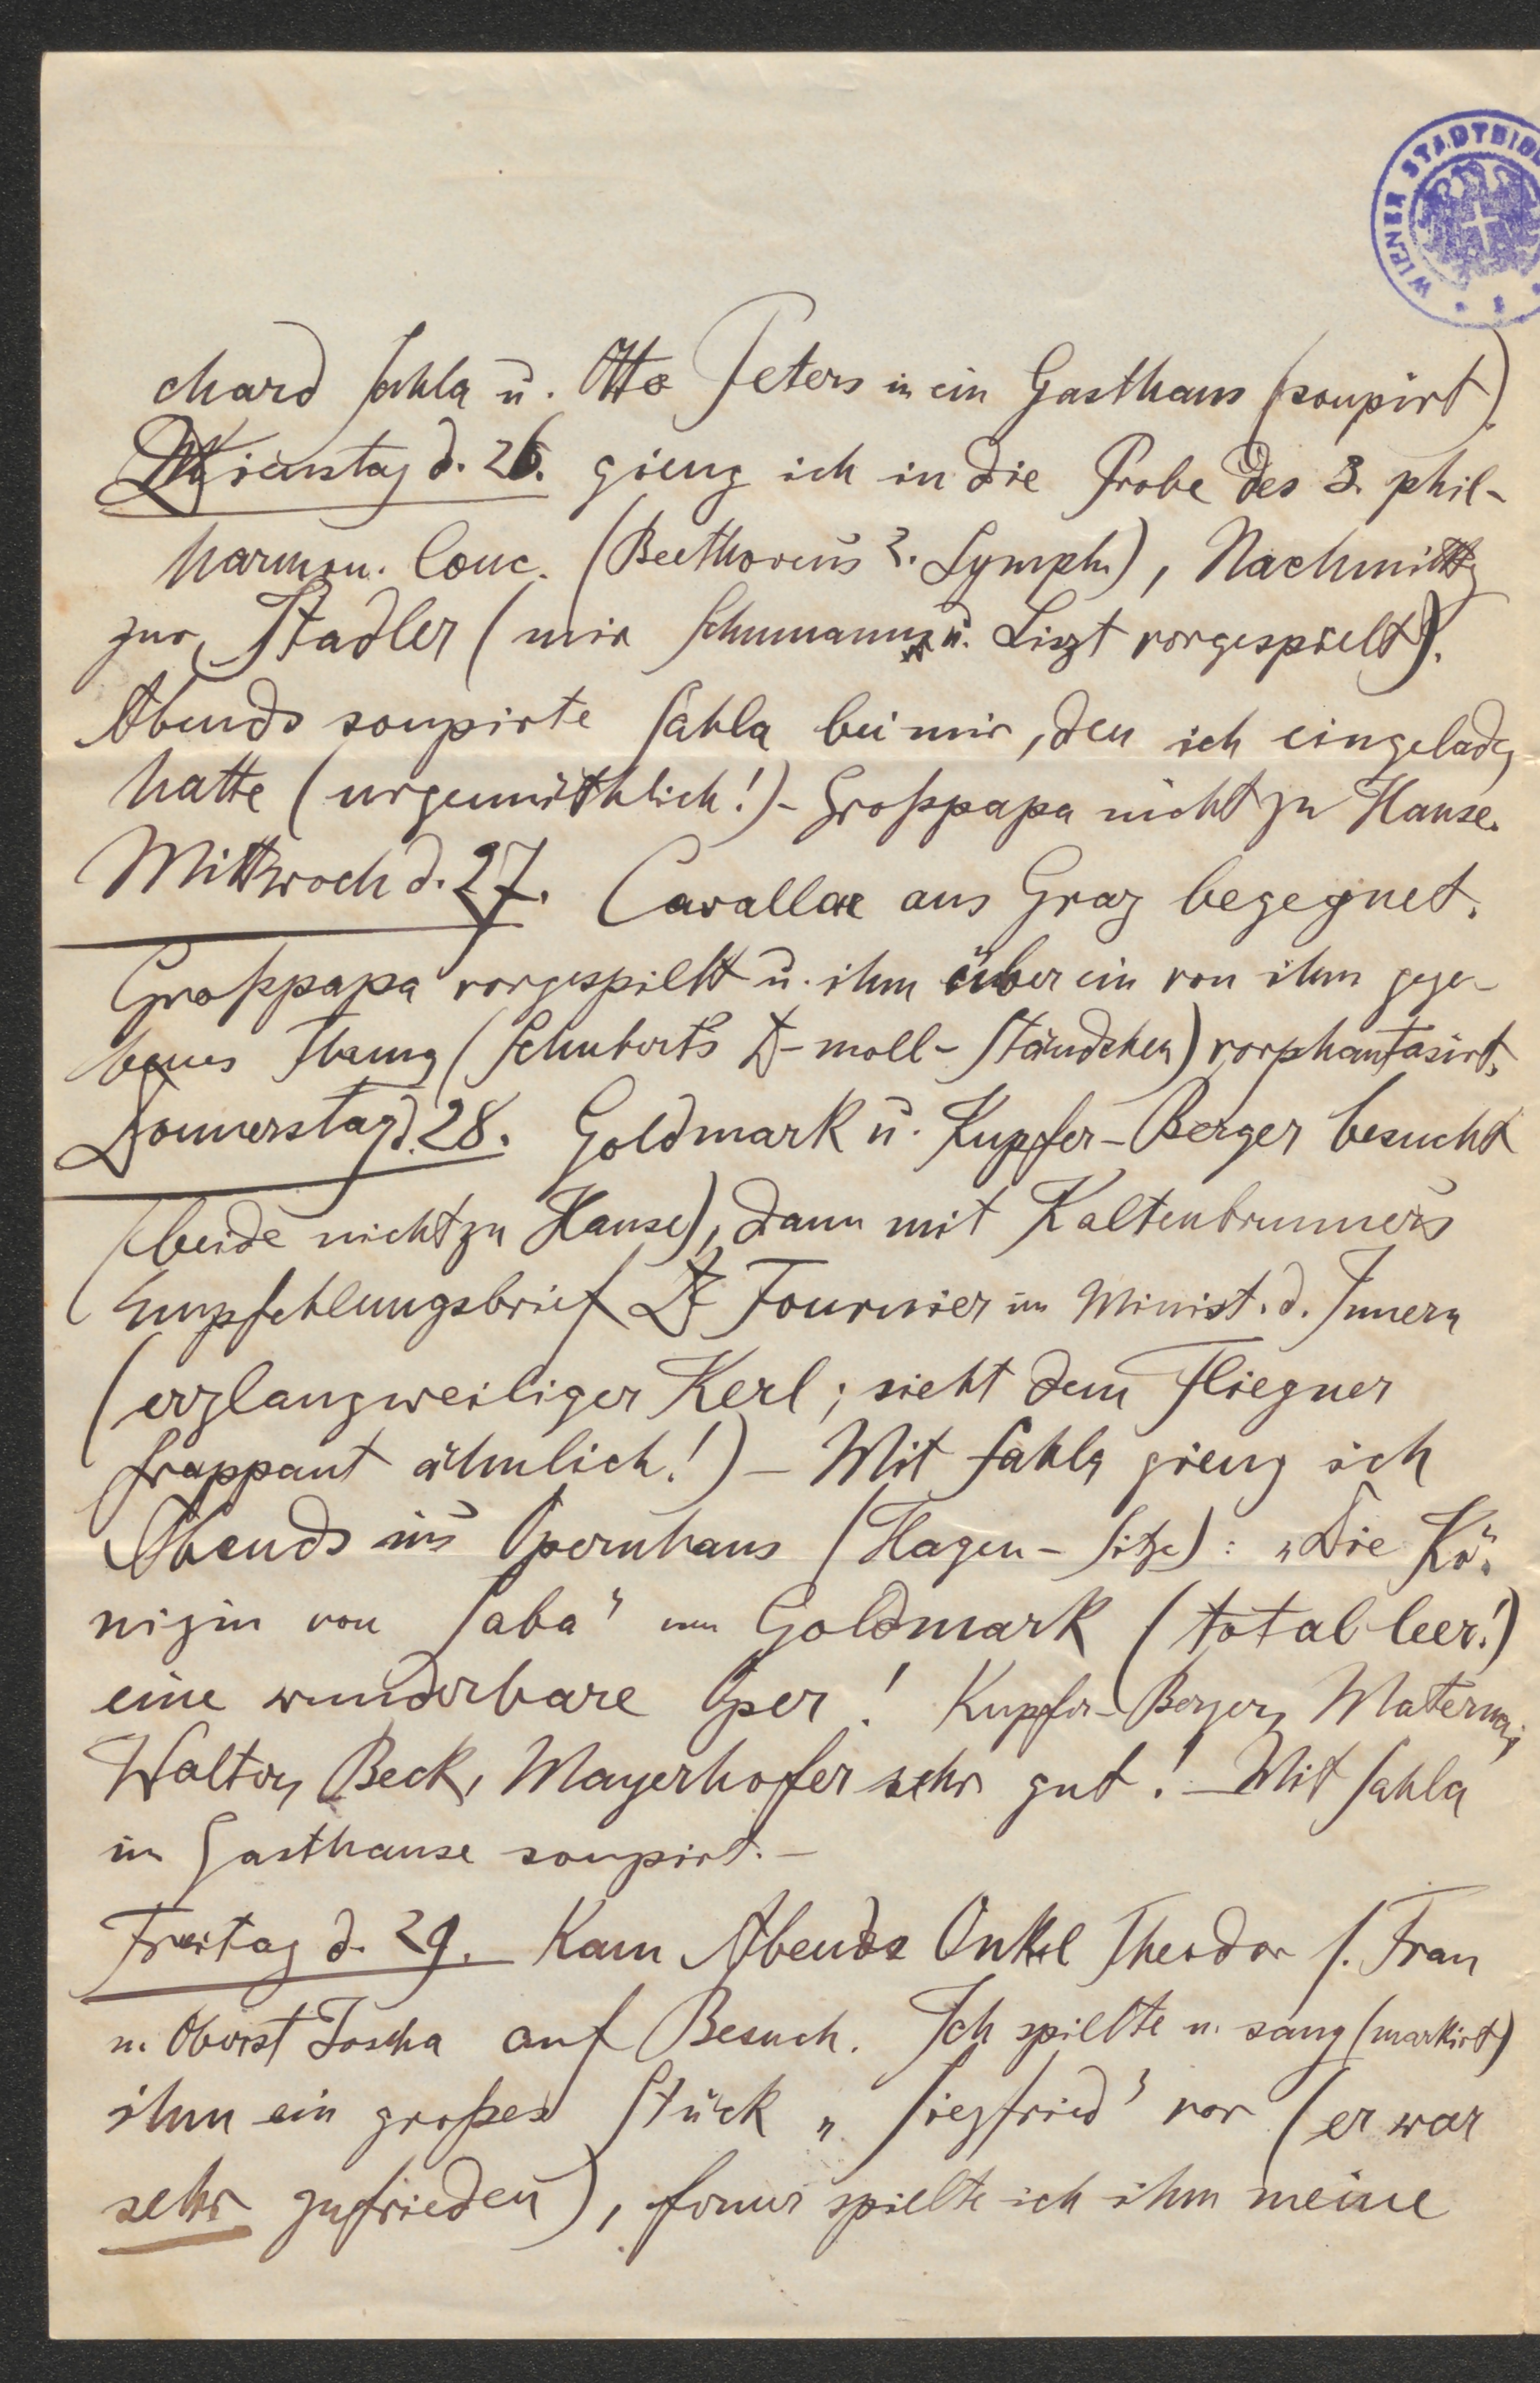 WIENER STADTBIB
chard Sahla u. Otto Peters in ein Gasthaus (soupirt).
Dienstag d. 26. gieng ich in die Probe des 3. phil-
harmon. Conc. (Beethovens 2. Symph.), Nachmittg
zur Stadler (mir Schumann u. Liszt vorgespielt).
Abends soupirte Sahla bei mir, den ich eingeladen
hatte (urgemüthlich!) - Großpapa nicht zu Hause.
Mittwoch d. 27. Cavallar aus Graz begegnet.
Großpapa vorgespielt u. ihm über ein von ihm gege-
benes Thema (Schubert's D-moll-Ständchen) vorphantasirt.
Donnerstag d. 28. Goldmark u. Kupfer-Berger besucht
(beide nicht zu Hause), dann mit Kaltenbrunner's
Empfehlungsbrief Dr Fournier im Minist. d. Innern
(erzlangweiliger Kerl; sieht dem Fliegner
frappant ähnlich!) - Mit Sahla gieng ich
Abends ins Opernhaus (Hagen-Sitze): „Die Kö-
nigin von Saba" von Goldmark (total leer!)
eine wunderbare Oper! Kupfer-Berger, Materna,
Walter, Beck, Mayerhofer sehr gut! - Mit Sahla
im Gasthause soupirt. -
Freitag d. 29. Kam Abends Onkel Theodor s. Frau
u. Oberst Joscha auf Besuch. Ich spielte u. sang (markirt)
ihm ein großes Stück „Siegfried" vor (er war
sehr zufrieden), ferner spielte ich ihm meine